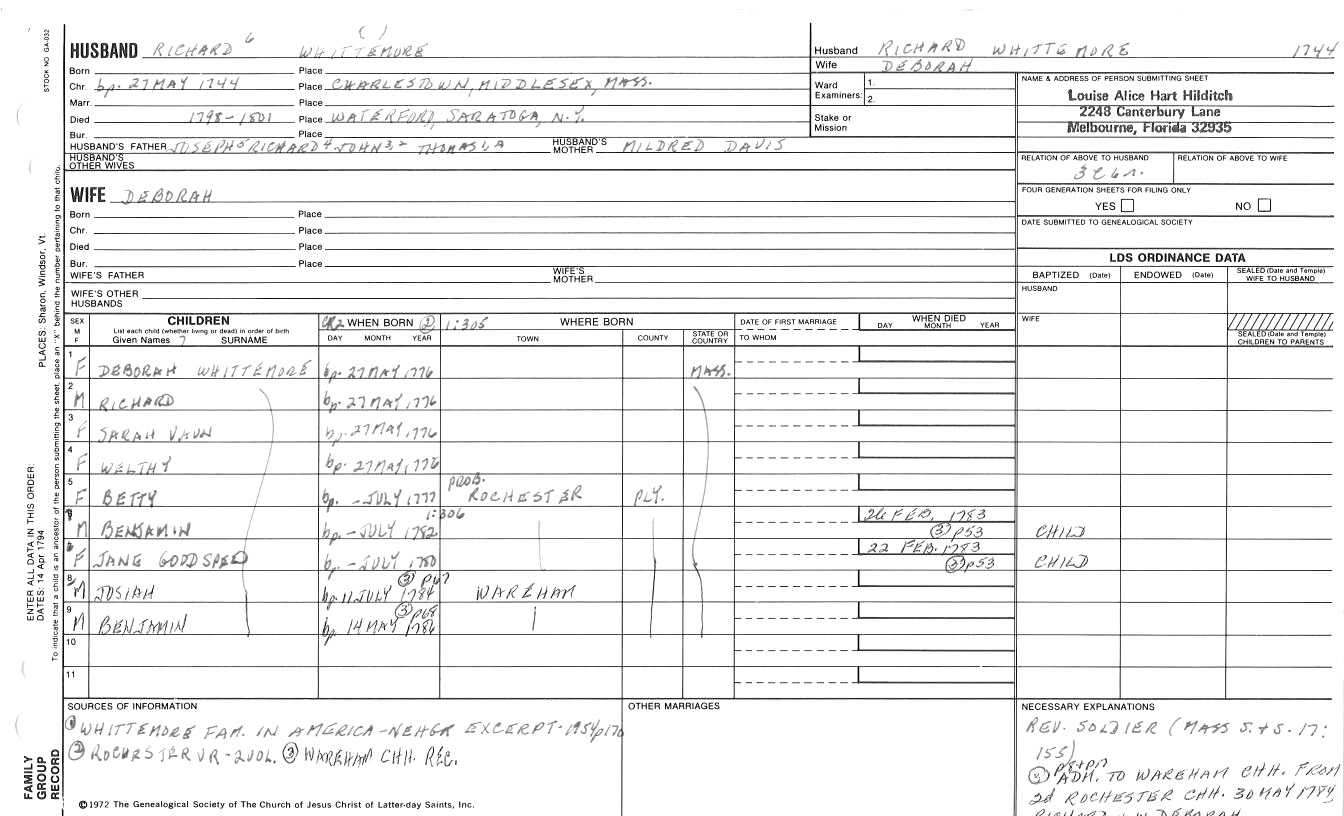 STOCK NO GA-032
PLACES: Sharon, Windsor, Vt.
ENTER ALL DATA IN THIS ORDER:
DATES: 14 Apr 1794
To indicate that a child is an ancestor of the person submitting the sheet, place an "X" behind the number pertaining to that child.
FAMILY
GROUP
RECORD
HUSBAND RICHARD 6 ( ) WHITTEMORE
Born Place
Chr. bp. 27 MAY 1744 Place CHARLESTOWN, MIDDLESEX, MASS.
Marr. Place
Died 1798-1801 Place WATERFORD, SARATOGA, N.Y.
Bur. Place
HUSBAND'S FATHER JOSEPH 5 RICHARD 4 JOHN 3,2 THOMAS 1,A HUSBAND'S MOTHER MILDRED DAVIS
HUSBAND'S OTHER WIVES
WIFE DEBORAH
Born Place
Chr. Place
Died Place
Bur. Place
WIFE'S FATHER WIFE'S MOTHER
WIFE'S OTHER HUSBANDS
Husband RICHARD WHITTEMORE 1744
Wife DEBORAH
Ward Examiners: 1. 2.
Stake or Mission
NAME & ADDRESS OF PERSON SUBMITTING SHEET
Louise Alice Hart Hilditch
2248 Canterbury Lane
Melbourne, Florida 32935
RELATION OF ABOVE TO HUSBAND RELATION OF ABOVE TO WIFE
FOUR GENERATION SHEETS FOR FILING ONLY
YES NO
DATE SUBMITTED TO GENEALOGICAL SOCIETY
LDS ORDINANCE DATA
BAPTIZED (Date) ENDOWED (Date) SEALED (Date and Temple) WIFE TO HUSBAND
HUSBAND
WIFE
SEALED (Date and Temple) CHILDREN TO PARENTS
SEX M F CHILDREN WHEN BORN ② 1:305 WHERE BORN DATE OF FIRST MARRIAGE WHEN DIED
List each child (whether living or dead) in order of birth
Given Names 7 SURNAME DAY MONTH YEAR TOWN COUNTY STATE OR COUNTRY TO WHOM DAY MONTH YEAR
1 F DEBORAH WHITTEMORE bp. 27 MAY, 1776 MASS.
2 M RICHARD bp. 27 MAY, 1776
3 F SARAH VAUN bp. 27 MAY, 1776
4 F WELTHY bp. 27 MAY, 1776
5 F BETTY bp. - JULY, 1777 PROB. ROCHESTER PLY.
M BENJAMIN bp. - JULY 1782 1:306 26 FEB. 1783 ③ p53 CHILD
F JANE GOODSPEED bp. - JULY, 1780 22 FEB. 1783 ③ p53 CHILD
8 M JOSIAH bp. 11 JULY 1784 ③ p67 WAREHAM
9 M BENJAMIN bp. 14 MAY 1786 ③ p68
10
11
SOURCES OF INFORMATION
① WHITTEMORE FAM. IN AMERICA-NEHGR EXCERPT-1954 p170
② ROCHESTER VR-2VOL. ③ WAREHAM CHH. REC.
OTHER MARRIAGES
NECESSARY EXPLANATIONS
REV. SOLDIER (MASS S.+S. 17:
155)
③ ADM. TO WAREHAM CHH. FROM
2d ROCHESTER CHH. 30 MAY 1784
©1972 The Genealogical Society of The Church of Jesus Christ of Latter-day Saints, Inc.